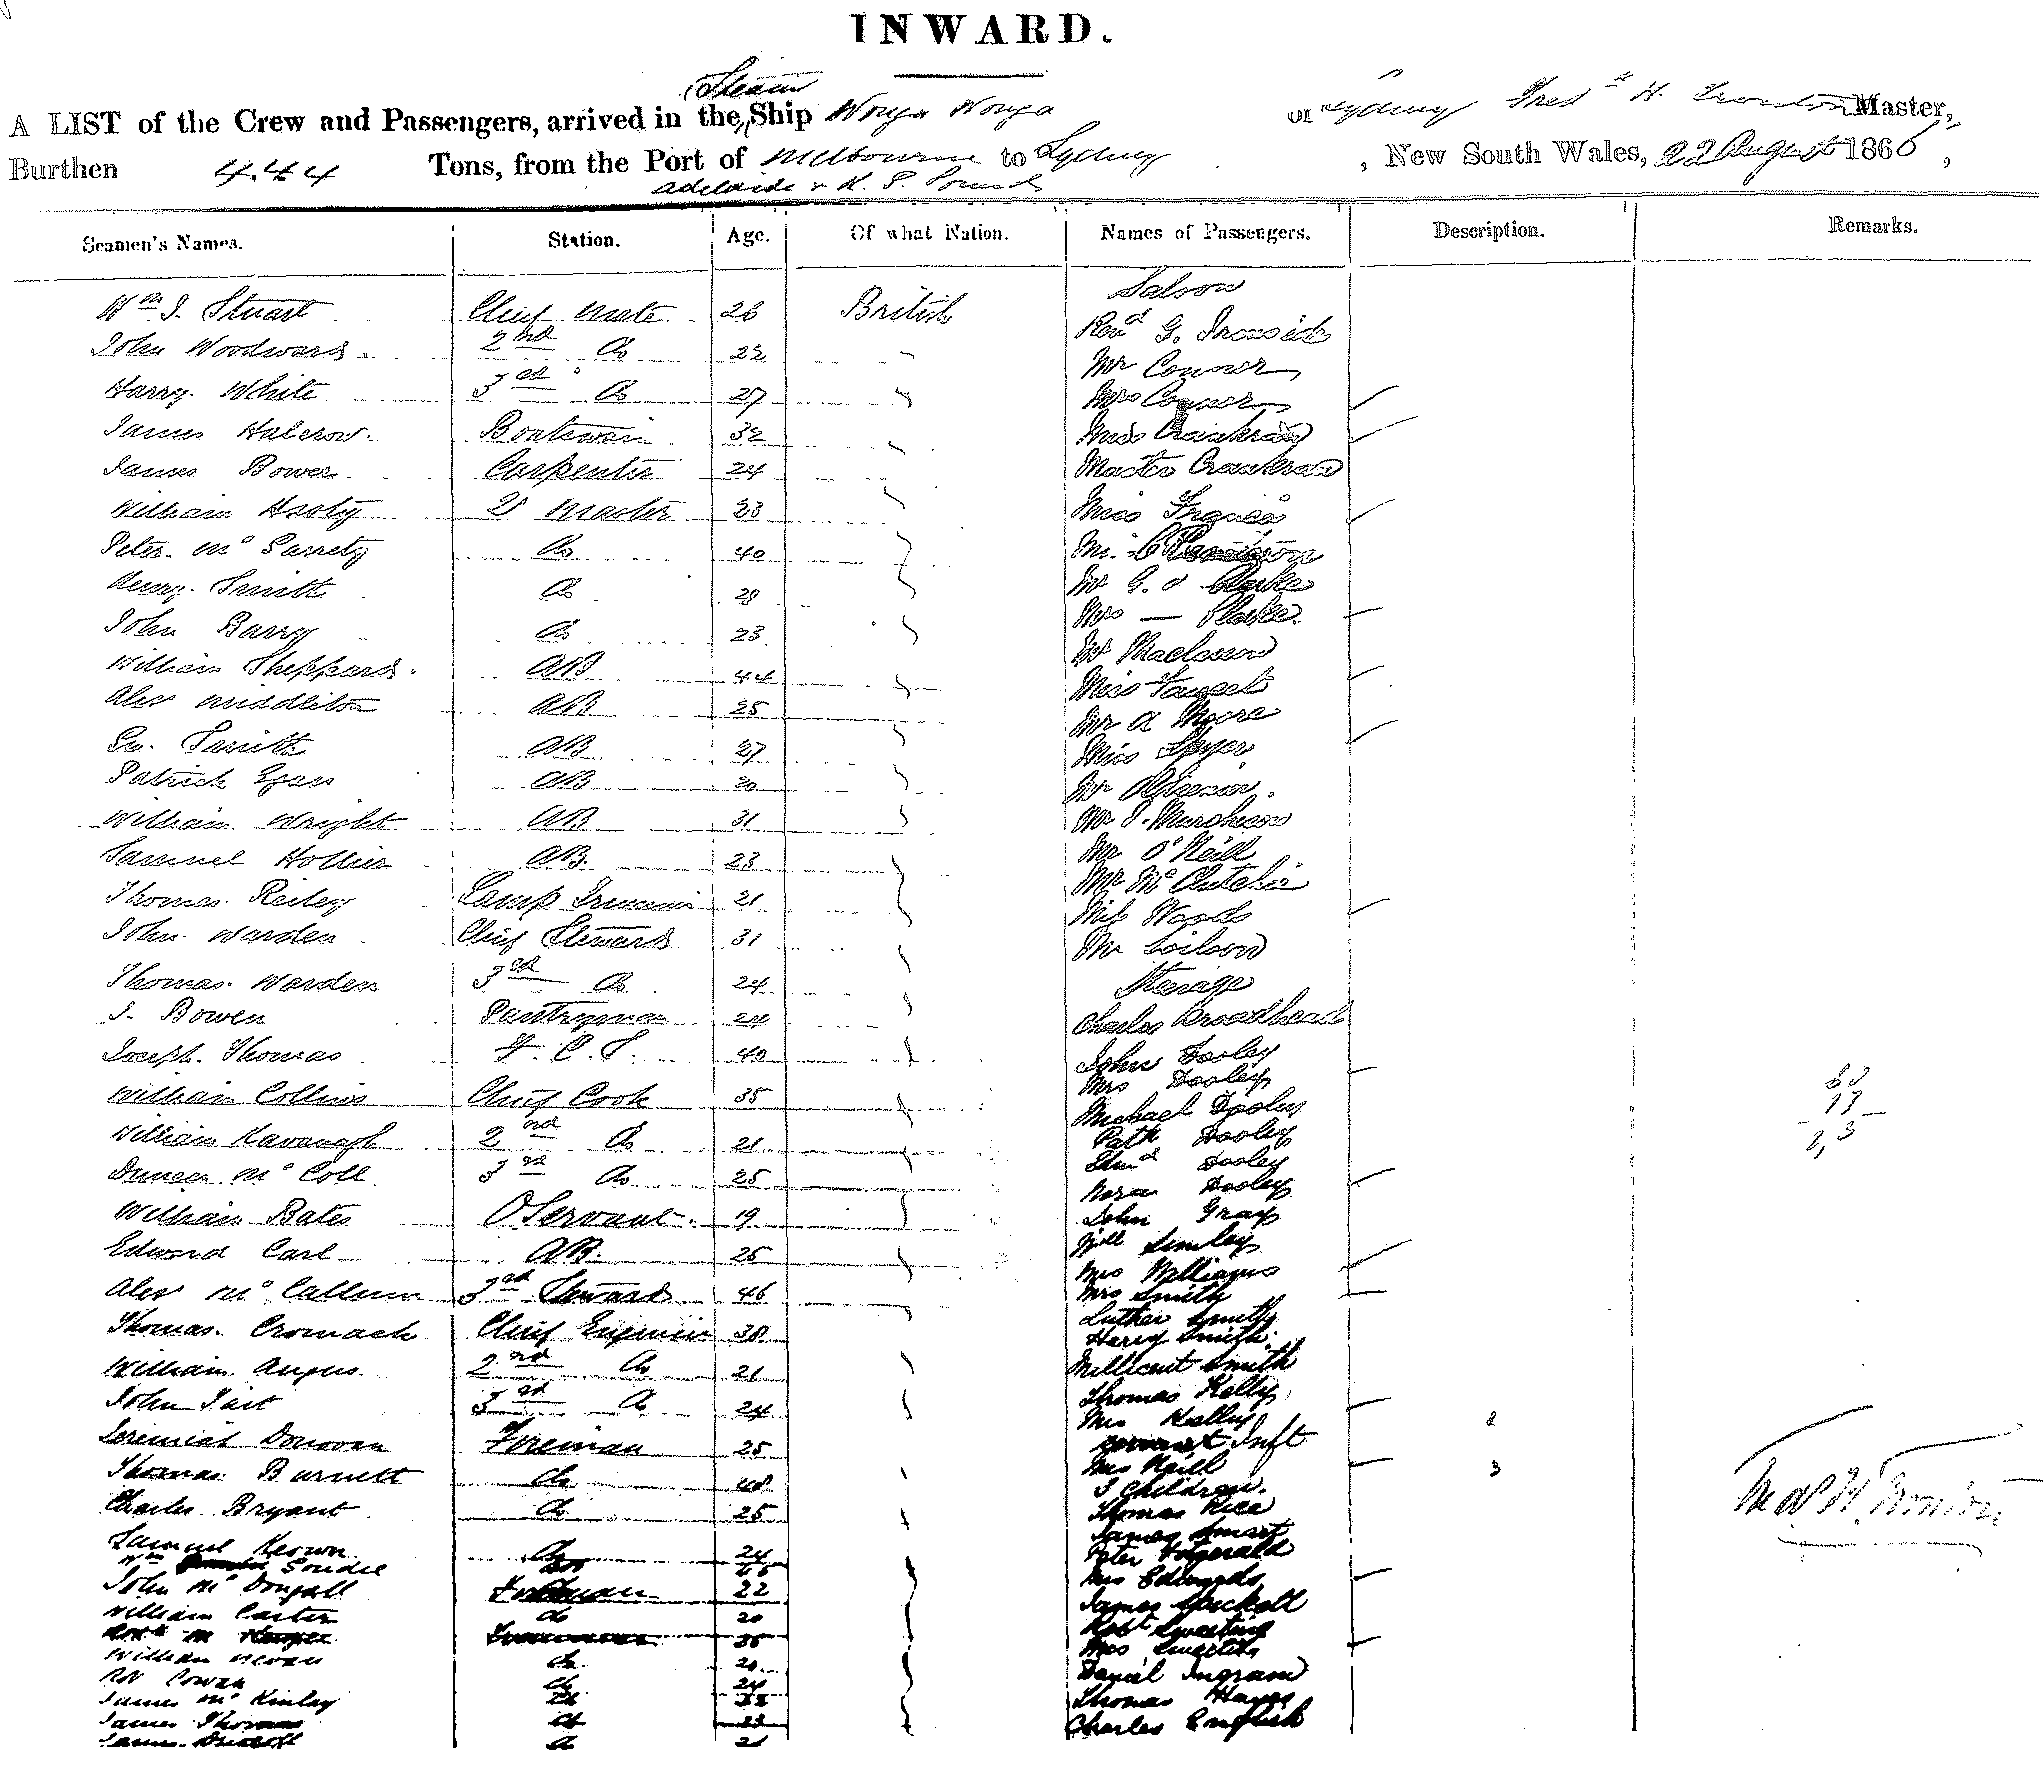 INWARD.
(Steam
A LIST of the Crew and Passengers, arrived in the Ship Wonga Wonga of Sydney Fred^k H. Trouton Master,
Burthen 444 Tons, from the Port of Melbourne to Sydney, New South Wales, 22 August 1866,
Adelaide & K. G. Sound
Seamen's Names. Station. Age. Of what Nation. Names of Passengers. Description. Remarks.
Saloon
Wm J. Stuart Chief Mate 26 British Revd G. Ironside
John Woodward 2nd Do 22 Mr Connor
Harry White 3rd Do 27 Mrs Connor
James Halcrow Boatswain 32 Miss
James Bower Carpenter 24 Master
William 2r Master 23 Miss
Peter Mc Do 40 Mr
Henry Smith Do 28 Mr G. O Clarke
John Barry Do 23 Mrs — Clarke
William Sheppard AB 44 Mr
Alex Middleton AB 25 Miss
Geo. Smith AB 27 Mr A Moore
Patrick Egan AB 20 Miss Spyer
William Wright AB 31 Mr
Samuel Hollier AB. 23 Mr J. Murcheson
Thomas Reiley Lamp Trimmer 21 Mr O'Neill
John Warden Chief Steward 31 Mr McCutchin
Thomas Warden 3rd Do 24 Miss Woods
J. Bowen Pantryman 24 Mr
Joseph Thomas F. C. S. 40 Steerage
William Collins Chief Cook 35 Charles Broadhead
William Kavanagh 2nd Do 21 John Dooley
Duncan McColl 3rd Do 25 Mrs Dooley
William Bates O Servant 19 Michael Dooley
Edward Carl AB. 25 Patk Dooley
Alex McCallum 3rd Steward 46 Edmd Dooley
Thomas Cromack Chief Engineer 38 Nora Dooley
William Angus 2nd Do 21 John Gray
John Tait 3rd Do 24
Jeremiah Donovan Fireman 25 Mrs Williams
Thomas Burnett Do 48 Mrs Smith
Charles Bryant Do 25 Luther Smith
Samuel Keown Do 24 Harry Smith
Wm Goudie Do Millicent Smith
John McDougall 22 Thomas Kelly
William Carter Do 20 Mrs Kelly
36 Inft 2
William Do 20 Mrs Neill 3
Rt Cowan Do 24 3 Children
James McKinlay Do Thomas Rice
James Thomas Do 23 James Smart
James Do 21 Peter Fitzgerald
Mrs Edwards
James
Robt Sweeting
Mrs Sweeting
Daniel Ingram
Thomas Hayes
Charles English
Fred H. Trouton